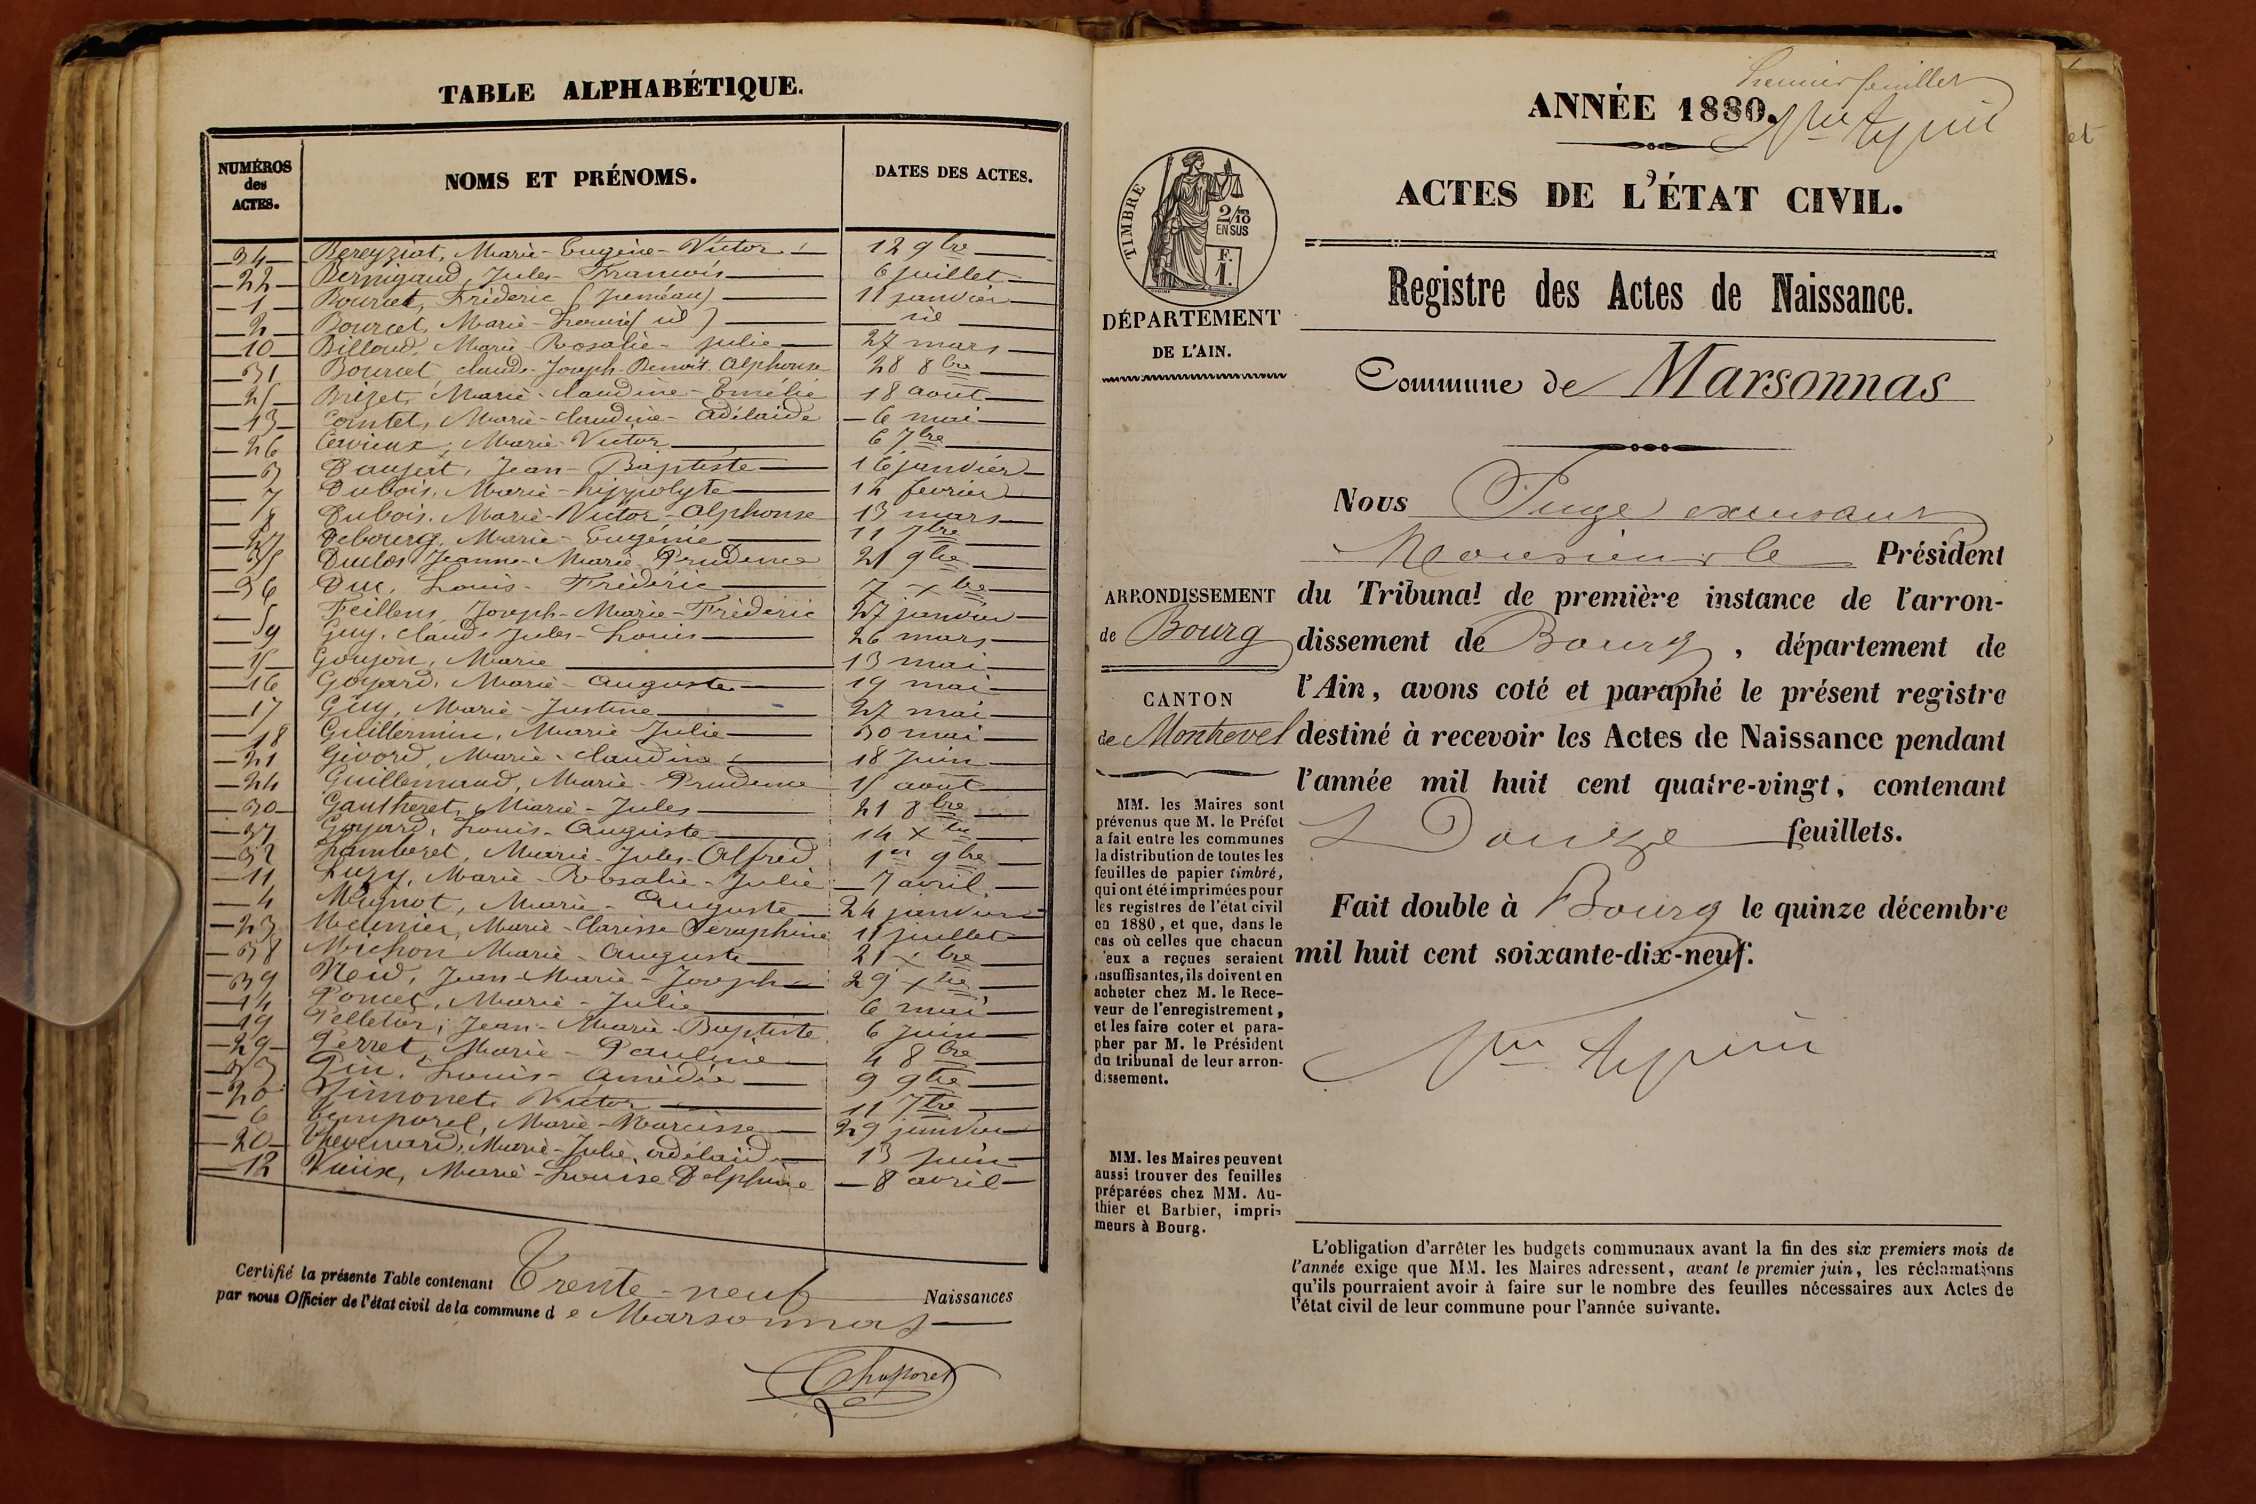 TABLE ALPHABÉTIQUE.
NUMÉROS
des
ACTES.
NOMS ET PRÉNOMS.
DATES DES ACTES.
34 Bereyziat, Marie-Eugène-Victor 12 9bre
22 Bernigaud, Jules-François 6 juillet
1 Bourcet, Fréderic (Jumeau) 11 janvier
2 Bourcet, Marie-Louis (id) id
10 Billoud, Marie-Rosalie-julie 27 mars
31 Bourcet claude-Joseph-Benoit Alphonse 28 8bre
25 Brizet, Marie-claudine-Emélie 18 aout
13 Comtet, Marie-claudine-adélaide 6 mai
26 Cervieux, Marie-Victor 6 7bre
3 Daujat, Jean-Baptiste 16 janvier
7 Dubois, Marie-hippolyte 12 fevrier
8 Dubois, Marie-Victor-Alphonse 13 mars
27 Debourg, Marie-Eugénie 11 7bre
35 Duclos Jeanne-Marie-Prudence 21 9bre
36 Duc, Louis-Fréderic 7 xbre
5 Feillens, Joseph-Marie-Fréderic 27 janvier
9 Guy, claude Jules-Louis 26 mars
15 Goujon, Marie 13 mai
16 Goyard, Marie-auguste 19 mai
17 Guy, Marie-Justine 27 mai
18 Guillermin, Marie Julie 30 mai
21 Givord, Marie-claudine 18 Juin
24 Guillemaud, Marie-Prudence 15 aout
30 Gautheret, Marie-Jules 21 8bre
37 Goyard, Louis-Auguste 14 xbre
32 Lamberet, Marie-Jules-Alfred 1er 9bre
11 Luzy, Marie-Rosalie-Julie 7 avril
4 Mignot, Marie-Auguste 24 janvier
23 Meunier, Marie-Clarisse Seraphine 11 juillet
38 Michon Marie-auguste 21 xbre
39 Neid, Jean-Marie-Joseph 29 xbre
14 Poncet, Marie-Julie 6 mai
19 Pelletier, Jean-Marie-Baptiste 6 juin
29 Perret, Marie-Pauline 4 8bre
33 Pin, Louis-Amédée 9 9bre
Simonet, Victor 11 7bre
6 temporel, Marie-Narcisse 29 janvier
20 thevenard, Marie-Julie adélaide 13 juin
12 Vieux, Marie-Louise Delphine 8 avril
Certifié la présente Table contenant Trente-neuf Naissances
par nous Officier de l'état civil de la commune de Marsonnas
Premier feuillet
ANNÉE 1880.
ACTES DE L'ÉTAT CIVIL.
TIMBRE
2/10
EN SUS
F.
1.
Registre des Actes de Naissance.
DÉPARTEMENT
DE L'AIN.
Commune de Marsonnas
Nous Juge
Monsieur le Président
du Tribunal de première instance de l'arron-
dissement de Bourg, département de
l'Ain, avons coté et paraphé le présent registre
destiné à recevoir les Actes de Naissance pendant
l'année mil huit cent quatre-vingt, contenant
Douze feuillets.
Fait double à Bourg le quinze décembre
mil huit cent soixante-dix-neuf.
ARRONDISSEMENT
de Bourg
CANTON
de Montrevel
MM. les Maires sont
prévenus que M. le Préfet
a fait entre les communes
la distribution de toutes les
feuilles de papier timbré,
qui ont été imprimées pour
les registres de l'état civil
en 1880, et que, dans le
cas où celles que chacun
'eux a reçues seraient
insuffisantes, ils doivent en
acheter chez M. le Rece-
veur de l'enregistrement,
et les faire coter et para-
pher par M. le Président
du tribunal de leur arron-
dissement.
MM. les Maires peuvent
aussi trouver des feuilles
préparées chez MM. Au-
thier et Barbier, impri-
meurs à Bourg.
L'obligation d'arrêter les budgets communaux avant la fin des six premiers mois de
l'année exige que MM. les Maires adressent, avant le premier juin, les réclamations
qu'ils pourraient avoir à faire sur le nombre des feuilles nécessaires aux Actes de
l'état civil de leur commune pour l'année suivante.